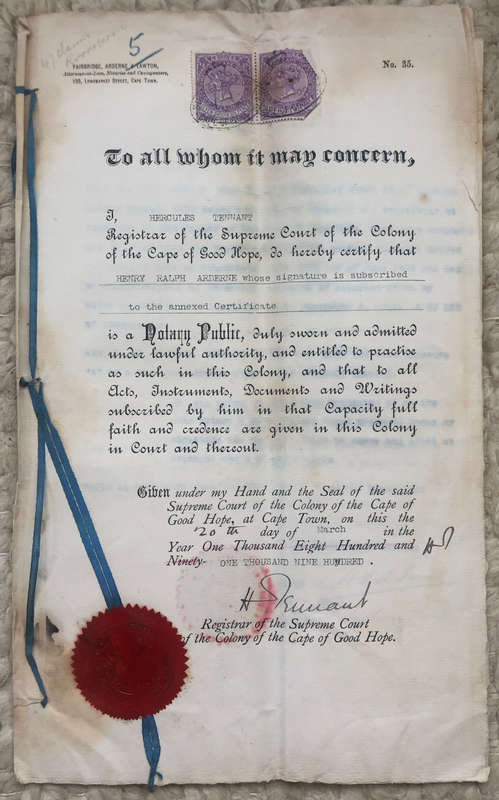 5
FAIRBRIDGE, ARDERNE & LAWTON,
Attorneys-at-Law, Notaries and Conveyancers,
Street, Cape Town.
No. 35.
To all whom it may concern,
I, HERCULES TENNANT
Registrar of the Supreme Court of the Colony
of the Cape of Good Hope, do hereby certify that
HENRY RALPH ARDERNE whose signature is subscribed
to the annexed Certificate
is a Notary Public, duly sworn and admitted
under lawful authority, and entitled to practise
as such in this Colony, and that to all
Acts, Instruments, Documents and Writings
subscribed by him in that Capacity full
faith and credence are given in this Colony
in Court and thereout.
Given under my Hand and the Seal of the said
Supreme Court of the Colony of the Cape of
Good Hope, at Cape Town, on this the
20th day of March in the
Year One Thousand Eight Hundred and
Ninety- ONE THOUSAND NINE HUNDRED.
H Tennant
Registrar of the Supreme Court
of the Colony of the Cape of Good Hope.